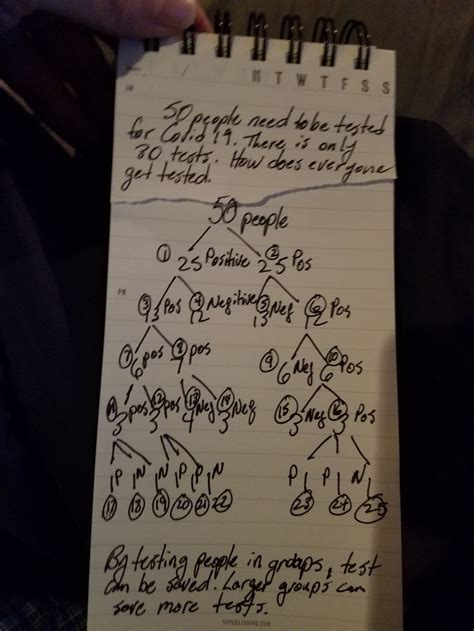 M T W T F S S
AM
50 people need to be tested
for Covid 19. There is only
30 tests. How does everyone
get tested.
50 people
① 25 Positive ② 25 Pos
PM
③ 13 Pos ④ 12 Negitive ⑤ 13 Neg ⑥ 12 Pos
⑦ 6 pos ⑧ 7 pos ⑨ 6 Neg ⑩ 6 Pos
⑪ 3 pos ⑫ 3 pos ⑬ 4 Neg ⑭ 3 Neg ⑮ 3 Neg ⑯ 3 Pos
P N N P P N P P N
⑰ ⑱ ⑲ ⑳ ㉑ 22 ㉓ ㉔ ㉕
By testing people in groups, test
can be saved. Larger groups can
save more tests.